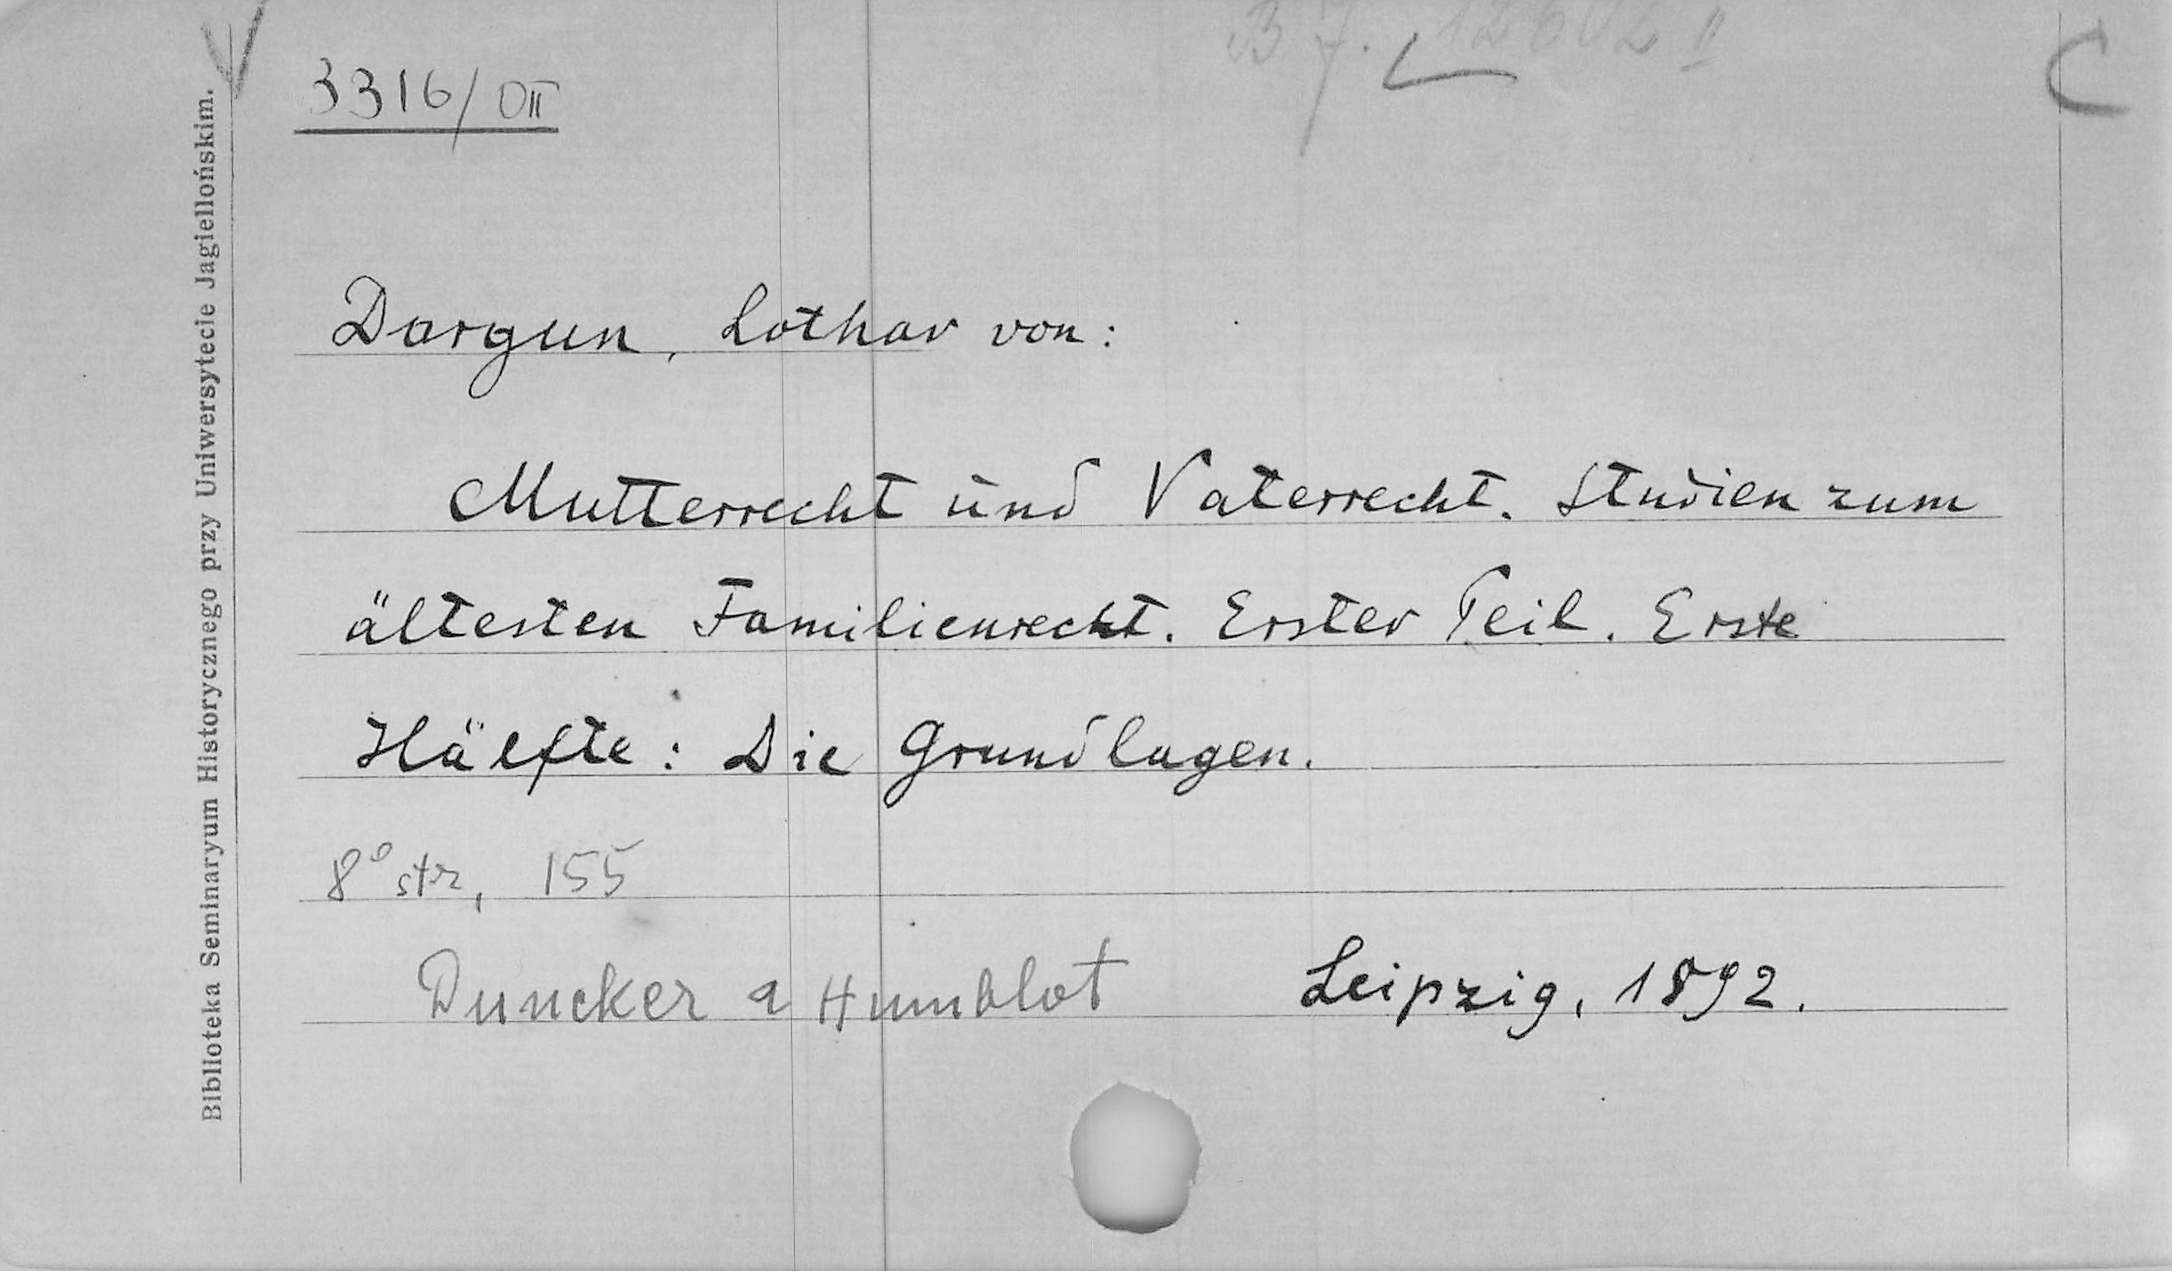 3316/DII
B J. 12602 II
C
Dargun, Lothar von:
Mutterrecht und Vaterrecht. Studien zum
ältesten Familienrecht. Erster Teil. Erste
Hälfte: Die Grundlagen.
8° str, 155
Duncker a Humblot Leipzig, 1892.
Biblioteka Seminaryum Historycznego przy Uniwersytecie Jagiellońskim.